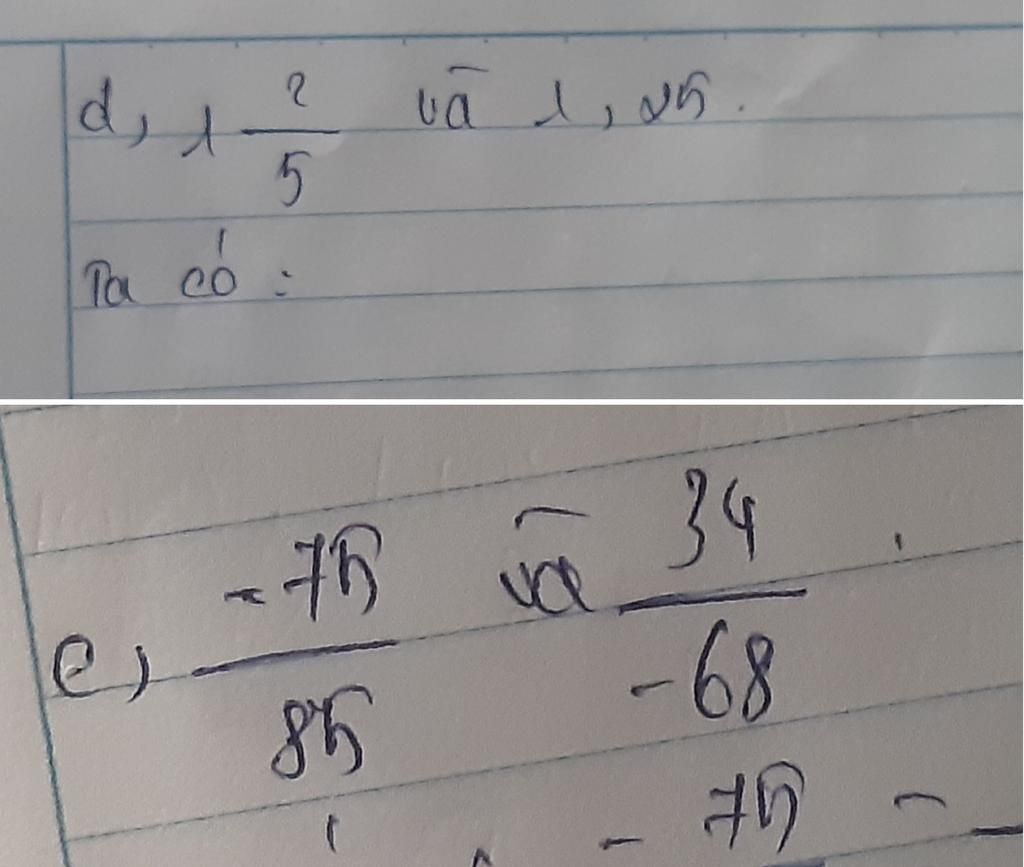 d, 1 2/5 và 1,25.
Ta có:
e, -75/85 và 34/-68.
- 75